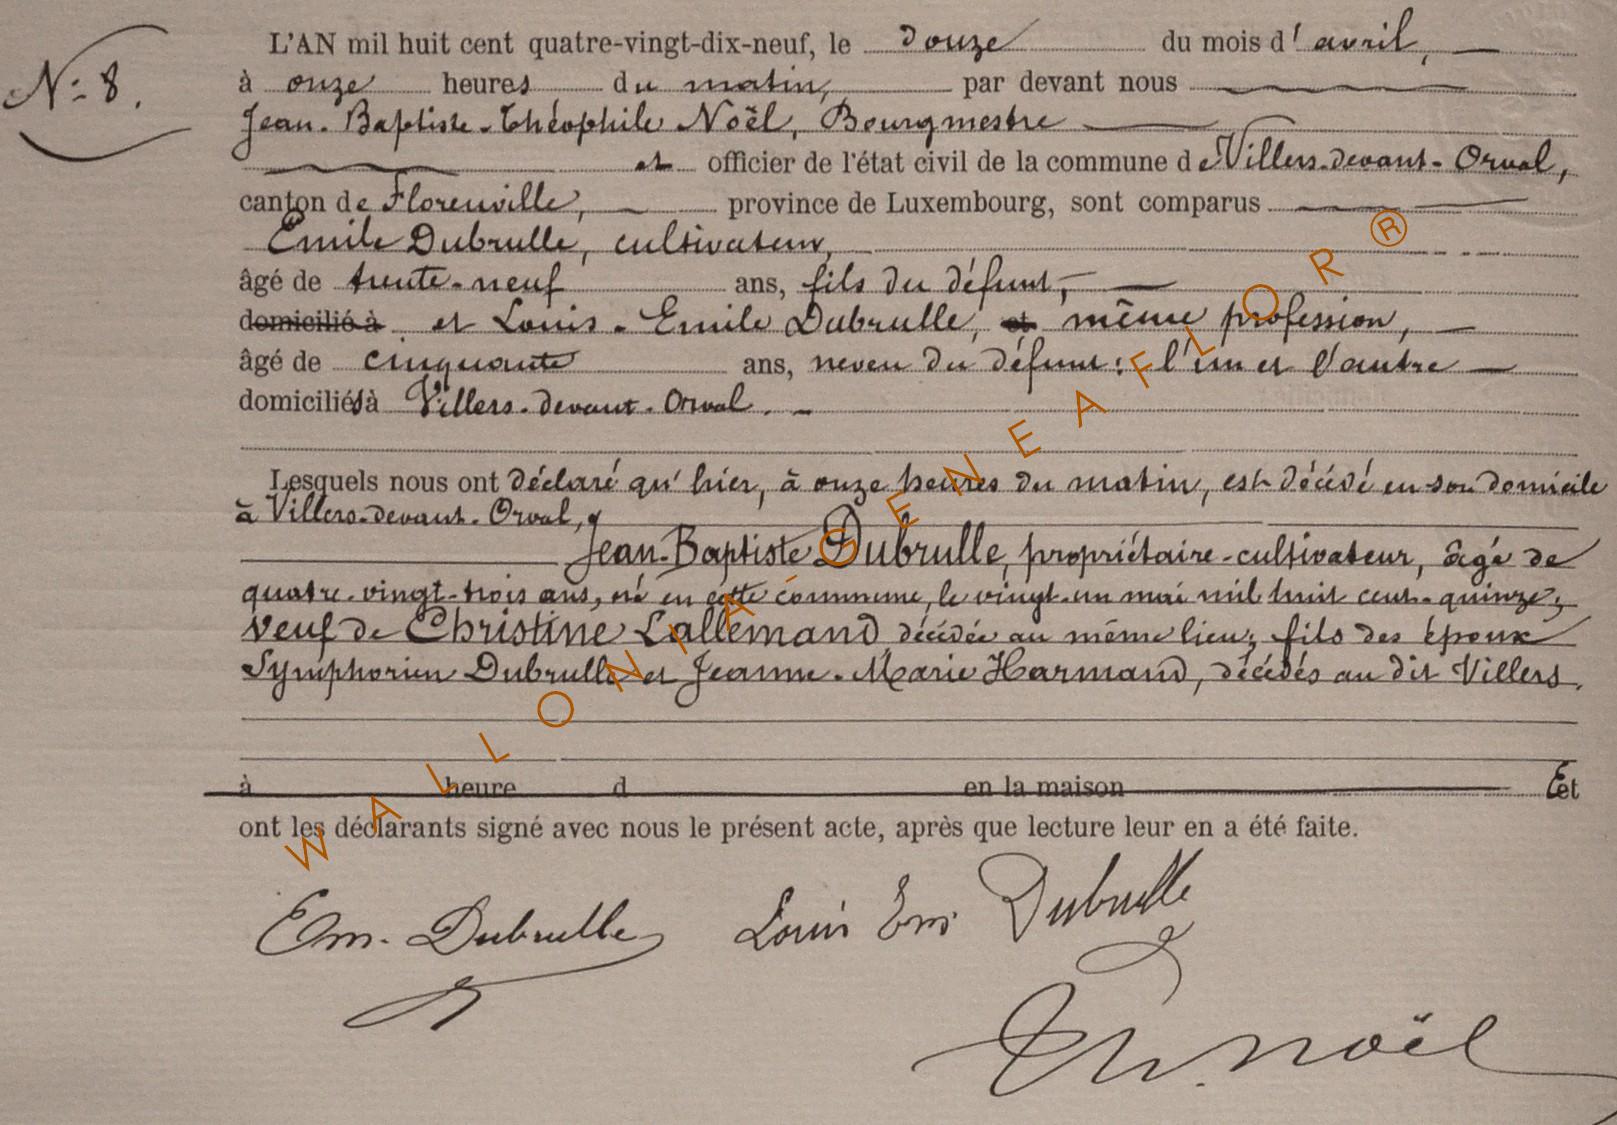 L'AN mil huit cent quatre-vingt-dix-neuf, le douze du mois d'avril,
N° 8.
à onze heures du matin, par devant nous
Jean-Baptiste-Théophile Noël, Bourgmestre
et officier de l'état civil de la commune de Villers-devant-Orval,
canton de Florenville, province de Luxembourg, sont comparus
Emile Dubrulle, cultivateur,
âgé de trente-neuf ans, fils du défunt,
domicilié à et Louis-Emile Dubrulle, et même profession,
âgé de cinquante ans, neveu du défunt : l'un et l'autre
domiciliés à Villers-devant-Orval.
Lesquels nous ont déclaré qu'hier, à onze heures du matin, est décédé en son domicile
à Villers-devant-Orval,
Jean-Baptiste Dubrulle, propriétaire-cultivateur, âgé de
quatre-vingt-trois ans, né en cette commune, le vingt-un mai mil huit cent-quinze;
veuf de Christine Lallemand décédée au même lieu; fils des époux
Symphorien Dubrulle et Jeanne-Marie Harmand, décédés au dit Villers.
à heure d en la maison Et
ont les déclarants signé avec nous le présent acte, après que lecture leur en a été faite.
Em. Dubrulle Louis Em Dubrulle
Th. Noël
WALLONIA-GENEAFLOR®